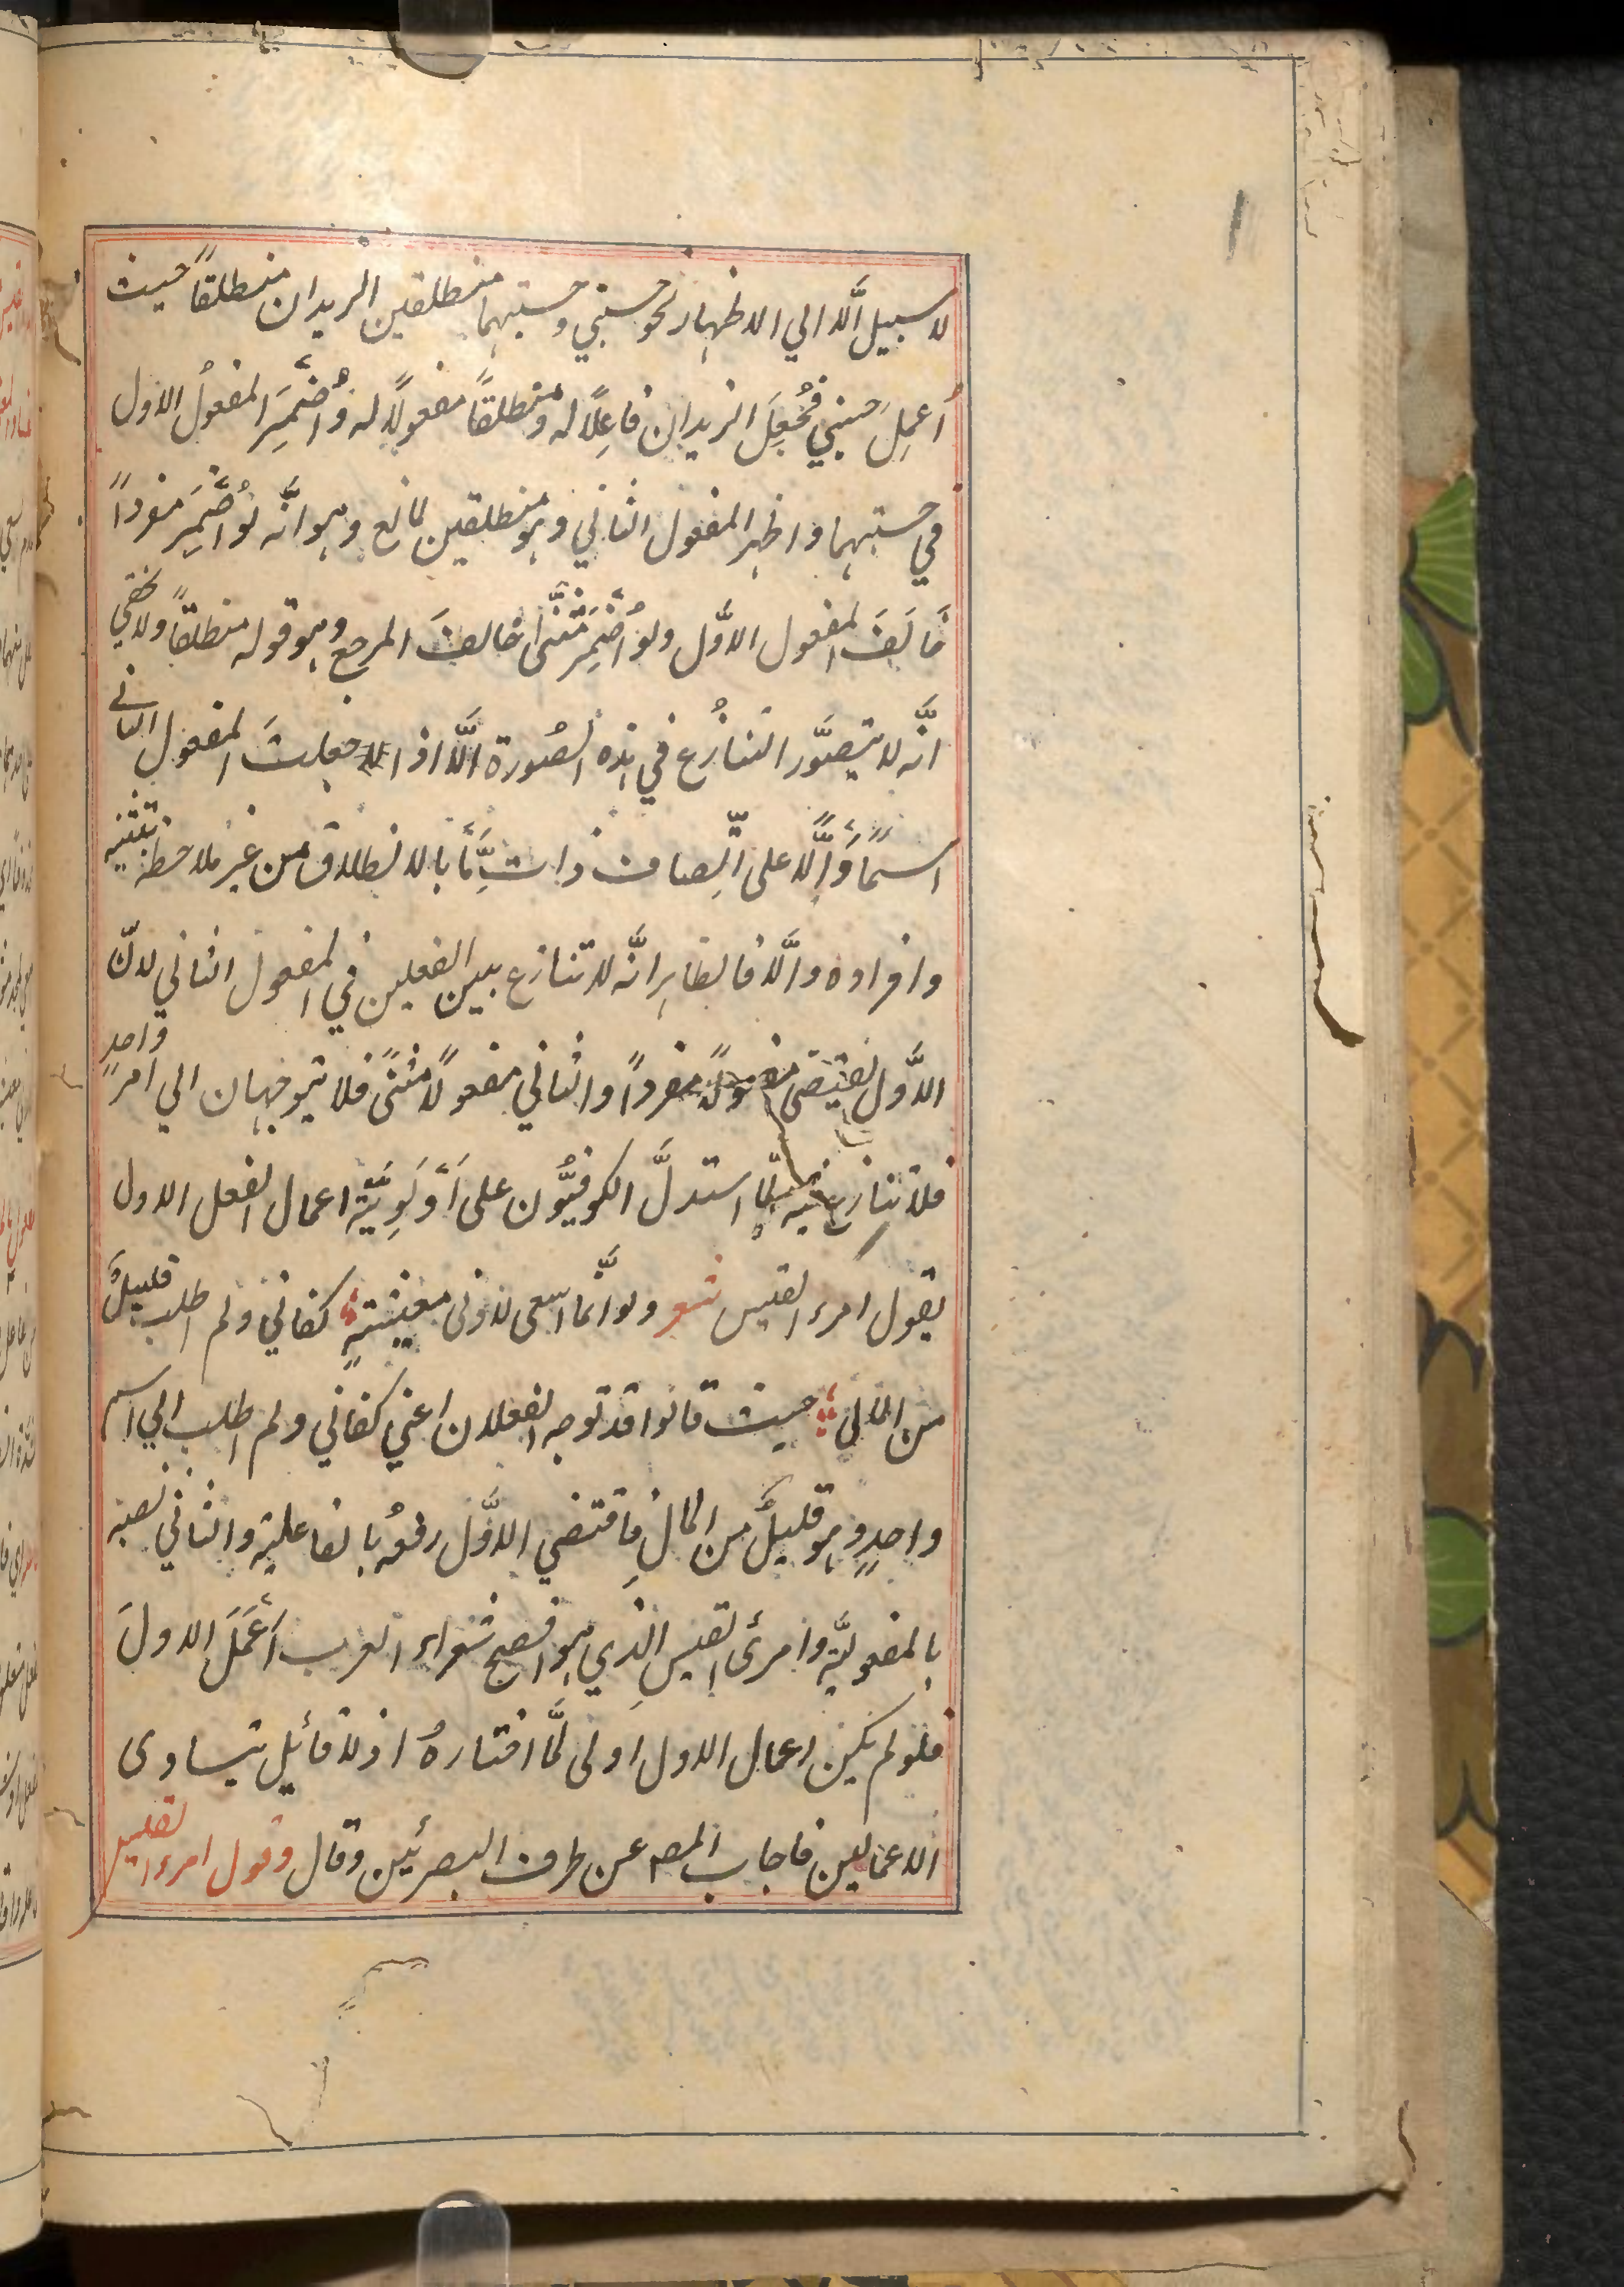 لا سبيل الّا الي الاظهار نحو حسبني وحسبتهما منطلقين الزيدان منطلقاً حيث
اُعمِلَ حسبني فجُعِلَ الزيدان فاعِلاً له ومنطلقاً مفعولاً له واُضمِرَ المفعولُ الاول
في حسبتهما واظهر المفعول الثاني وهو منطلقين لمانع وهو انَّه لو اُضمِرَ مفرداً
خالَفَ المفعول الاوَّل ولو اُضمِرَ مثنَّى خالفَ المرجع وهو قوله منطلقاً ولا يخفي
انَّه لا يتصوَّر التنازُع في هذه الصُورة الَّا اذا جعلتَ المفعول الثاني
اسماً دَالَّاً على اتِّصاف ذاتٍ مَّا بالانطلاق من غير ملاحظة تثنيته
وافراده والَّا فالظاهر انَّه لا تنازع بين الفعلين في المفعول الثاني لانّ
الاوَّل يقتضى مفعولاً مفرداً والثاني مفعولاً مثنًى فلا يتوجهان الي امر واحدٍ
فلا تنازع فيه لمّا استدلَّ الكوفيُّون على اَوْلَوِيَّة اعمال الفعل الاول
بقول امرء القيس شعر ولو انَّما اسعى لادنى معيشتهٍ كفاني ولم اطلب قليلٌ
من المالِ حيث قالوا قد توجه الفعلان اعني كفاني ولم اطلب الي اسم
واحدٍ وهو قليلٌ من المالِ فاقتضي الاوَّل رفعُه بالفاعلية والثاني نصبه
بالمفعوليَّة وامرئ القيسِ الذي هو افصح شعراء العرب اَعْمَلَ الاولَ
فلو لم يكن اعمال الاول اولى لمَّا اختارهُ اذ لا قائل بتساوى
الاعمالين فاجاب المصـ عن طرف البصرئين وقال وقول امرء القليس